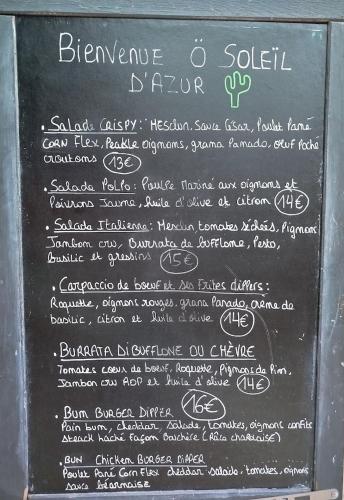 BIENVENUE Ö SOLEÏL
D'AZUR
. Salade CRISPY : MESclun, Sauce César, Poulet Pané
CORN FLEX, Peakle oignons, grana Panado, oeuf Poché
croutons 13€
. Salade Polpo : Poulpe Mariné aux oignons et
Poivrons Jaune, huile d'olive et citron 14€
. Salade Italienne : Mesclun tomates séchées, Pignons
Jambon cru, Burrata de bufflone, Pesto,
basilic et gressins 15€
. Carpaccio de boeuf et ses Frites dippers :
Roquette, oignons rouges, grana Panado, crème de
basilic, citron et huile d'olive 14€
. BURRATA DI BUFFLONE OU CHÈVRE
Tomates coeur de boeuf, Roquette, Pignons de Pin,
Jambon cru AOP et huile d'olive 14€
. BUM BURGER DIPPER 16€
Pain bum, cheddar, salade, tomates, oignons confits
Steack haché Façon Bouchère (Race charolaise)
. BUN Chicken BURGER DIPPER
Poulet Pané Corn Flex cheddar salade, tomates, oignons
sauce béarnaise